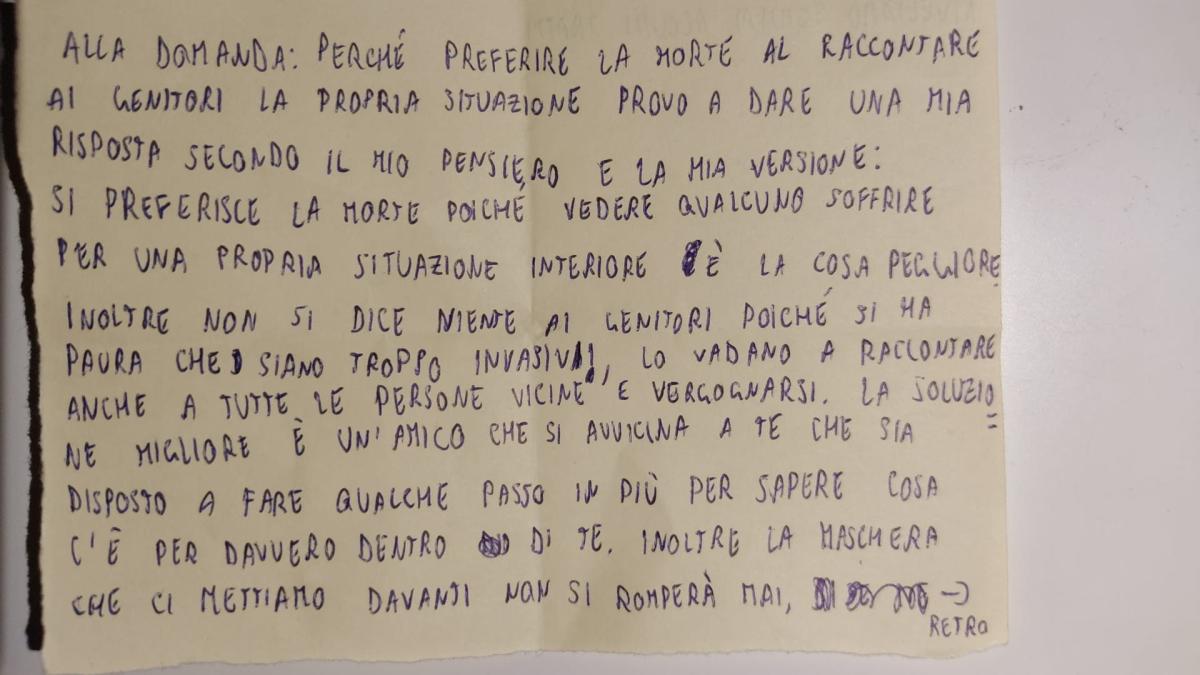 ALLA DOMANDA: PERCHÉ PREFERIRE LA MORTE AL RACCONTARE
AI GENITORI LA PROPRIA SITUAZIONE PROVO A DARE UNA MIA
RISPOSTA SECONDO IL MIO PENSIERO E LA MIA VERSIONE:
SI PREFERISCE LA MORTE POICHÉ VEDERE QUALCUNO SOFFRIRE
PER UNA PROPRIA SITUAZIONE INTERIORE È LA COSA PEGGIORE
INOLTRE NON SI DICE NIENTE AI GENITORI POICHÉ SI HA
PAURA CHE SIANO TROPPO INVASIVI, LO VADANO A RACCONTARE
ANCHE A TUTTE LE PERSONE VICINE E VERGOGNARSI. LA SOLUZIO
NE MIGLIORE È UN'AMICO CHE SI AVVICINA A TE CHE SIA
DISPOSTO A FARE QUALCHE PASSO IN PIÙ PER SAPERE COSA
C'È PER DAVVERO DENTRO DI TE. INOLTRE LA MASCHERA
CHE CI METTIAMO DAVANTI NON SI ROMPERÀ MAI, →
RETRO